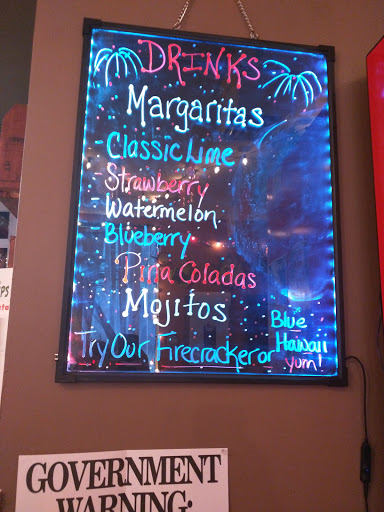 DRINKS
Margaritas
-Classic Lime
-Strawberry
-Watermelon
-Blueberry
Piña Coladas
Mojitos
Try Our Firecracker or Blue
Hawaii
yum!
GOVERNMENT
WARNING: